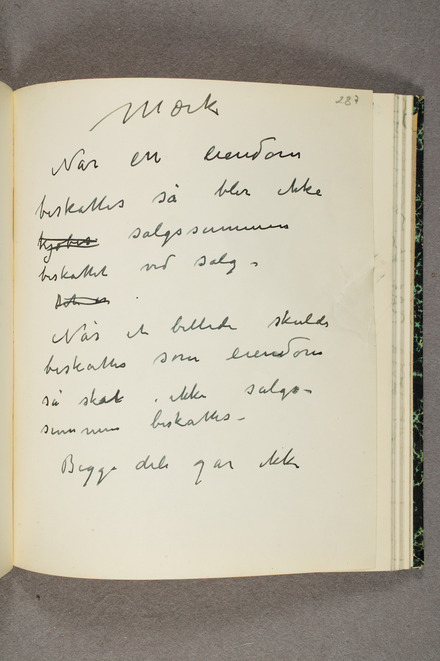 287
Mærk
Når en eiendom
beskattes så blir ikke
kjøbes salgssummen
beskattet ved salg.
Når et billede skulde
beskattes som eiendom
så skal ikke salgs-
summen beskattes –
Begge dele går ikke